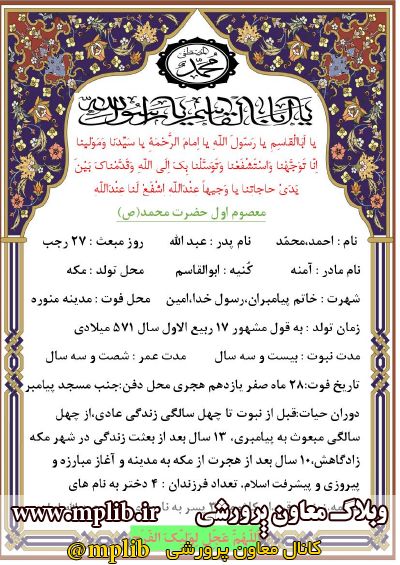 محمد
یا اباالقاسم یا رسول الله
یا اَبَاالْقاسِمِ یا رَسُولَ اللهِ یا اِمامَ الرَّحْمَةِ یا سَیِّدَنا وَمَوْلینا
اِنّا تَوَجَّهْنا وَاسْتَشْفَعْنا وَتَوَسَّلْنا بِکَ اِلَی اللهِ وَقَدَّمْناکَ بَیْنَ
یَدَیْ حاجاتنا یا وَجیهاً عِنْدَاللهِ اشْفَعْ لَنا عِنْدَاللهِ
معصوم اول حضرت محمد(ص)
نام : احمد،محمّد نام پدر : عبد الله روز مبعث : ۲۷ رجب
نام مادر : آمنه کُنیه : ابوالقاسم محل تولد : مکه
شهرت : خاتم پیامبران،رسول خدا،امین محل فوت : مدینه منوره
زمان تولد : به قول مشهور ۱۷ ربیع الاول سال ۵۷۱ میلادی
مدت نبوت : بیست و سه سال مدت عمر : شصت و سه سال
تاریخ فوت:۲۸ ماه صفر یازدهم هجری محل دفن:جنب مسجد پیامبر
دوران حیات:قبل از نبوت تا چهل سالگی زندگی عادی،از چهل
سالگی مبعوث به پیامبری، ۱۳ سال بعد از بعثت زندگی در شهر مکه
زادگاهش،۱۰ سال بعد از هجرت از مکه به مدینه و آغاز مبارزه و
پیروزی و پیشرفت اسلام. تعداد فرزندان : ۴ دختر به نام های
پسر به نام
وبلاگ معاون پرورشی www.mplib.ir
اللهم عجل لولیک الفرج
کانال معاون پرورشی @mplib